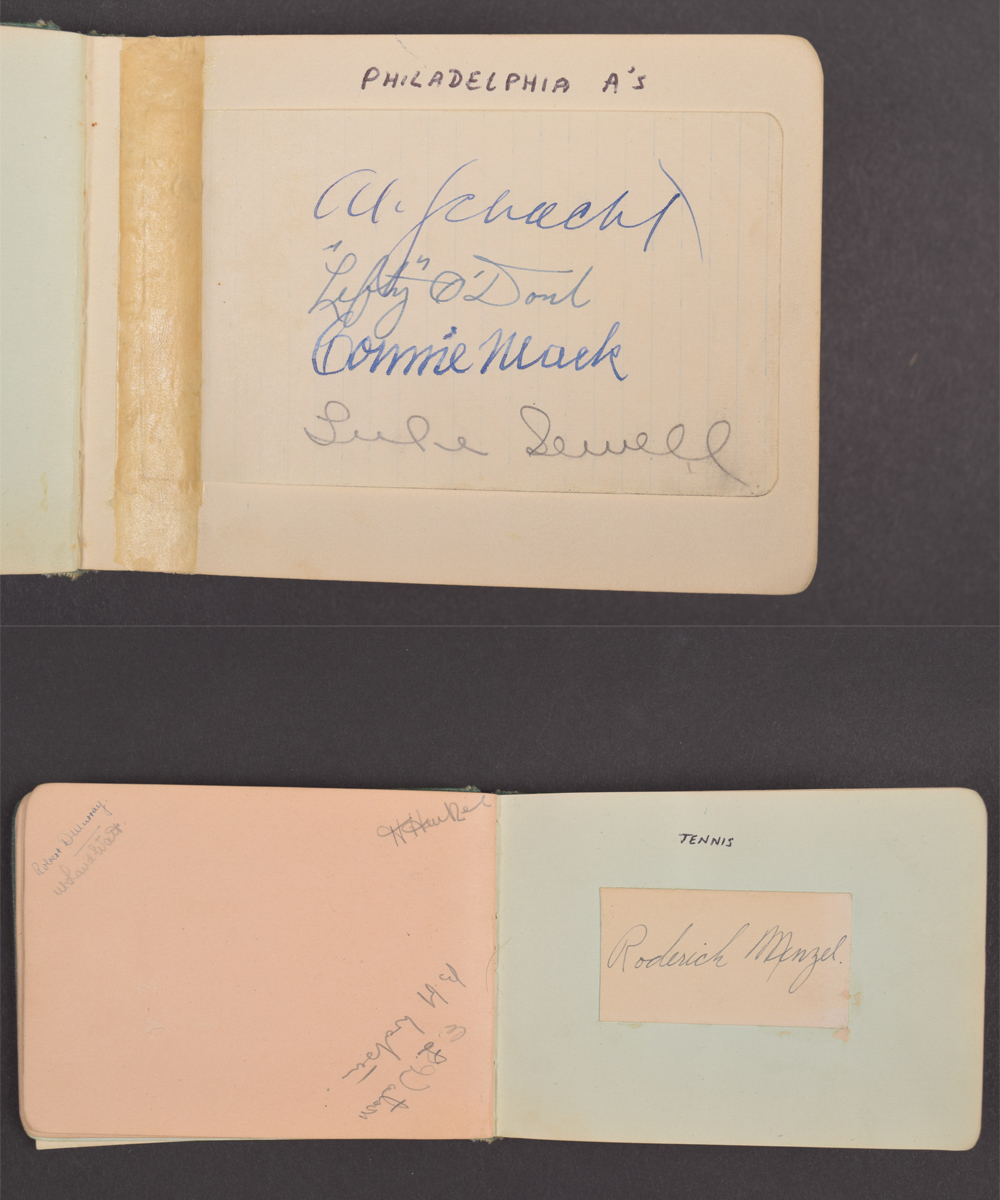 PHILADELPHIA A'S
Al. Schacht
"Lefty" O'Doul
Connie Mack
Luke Sewell
Robert D Murray.
TENNIS
Roderich Menzel.